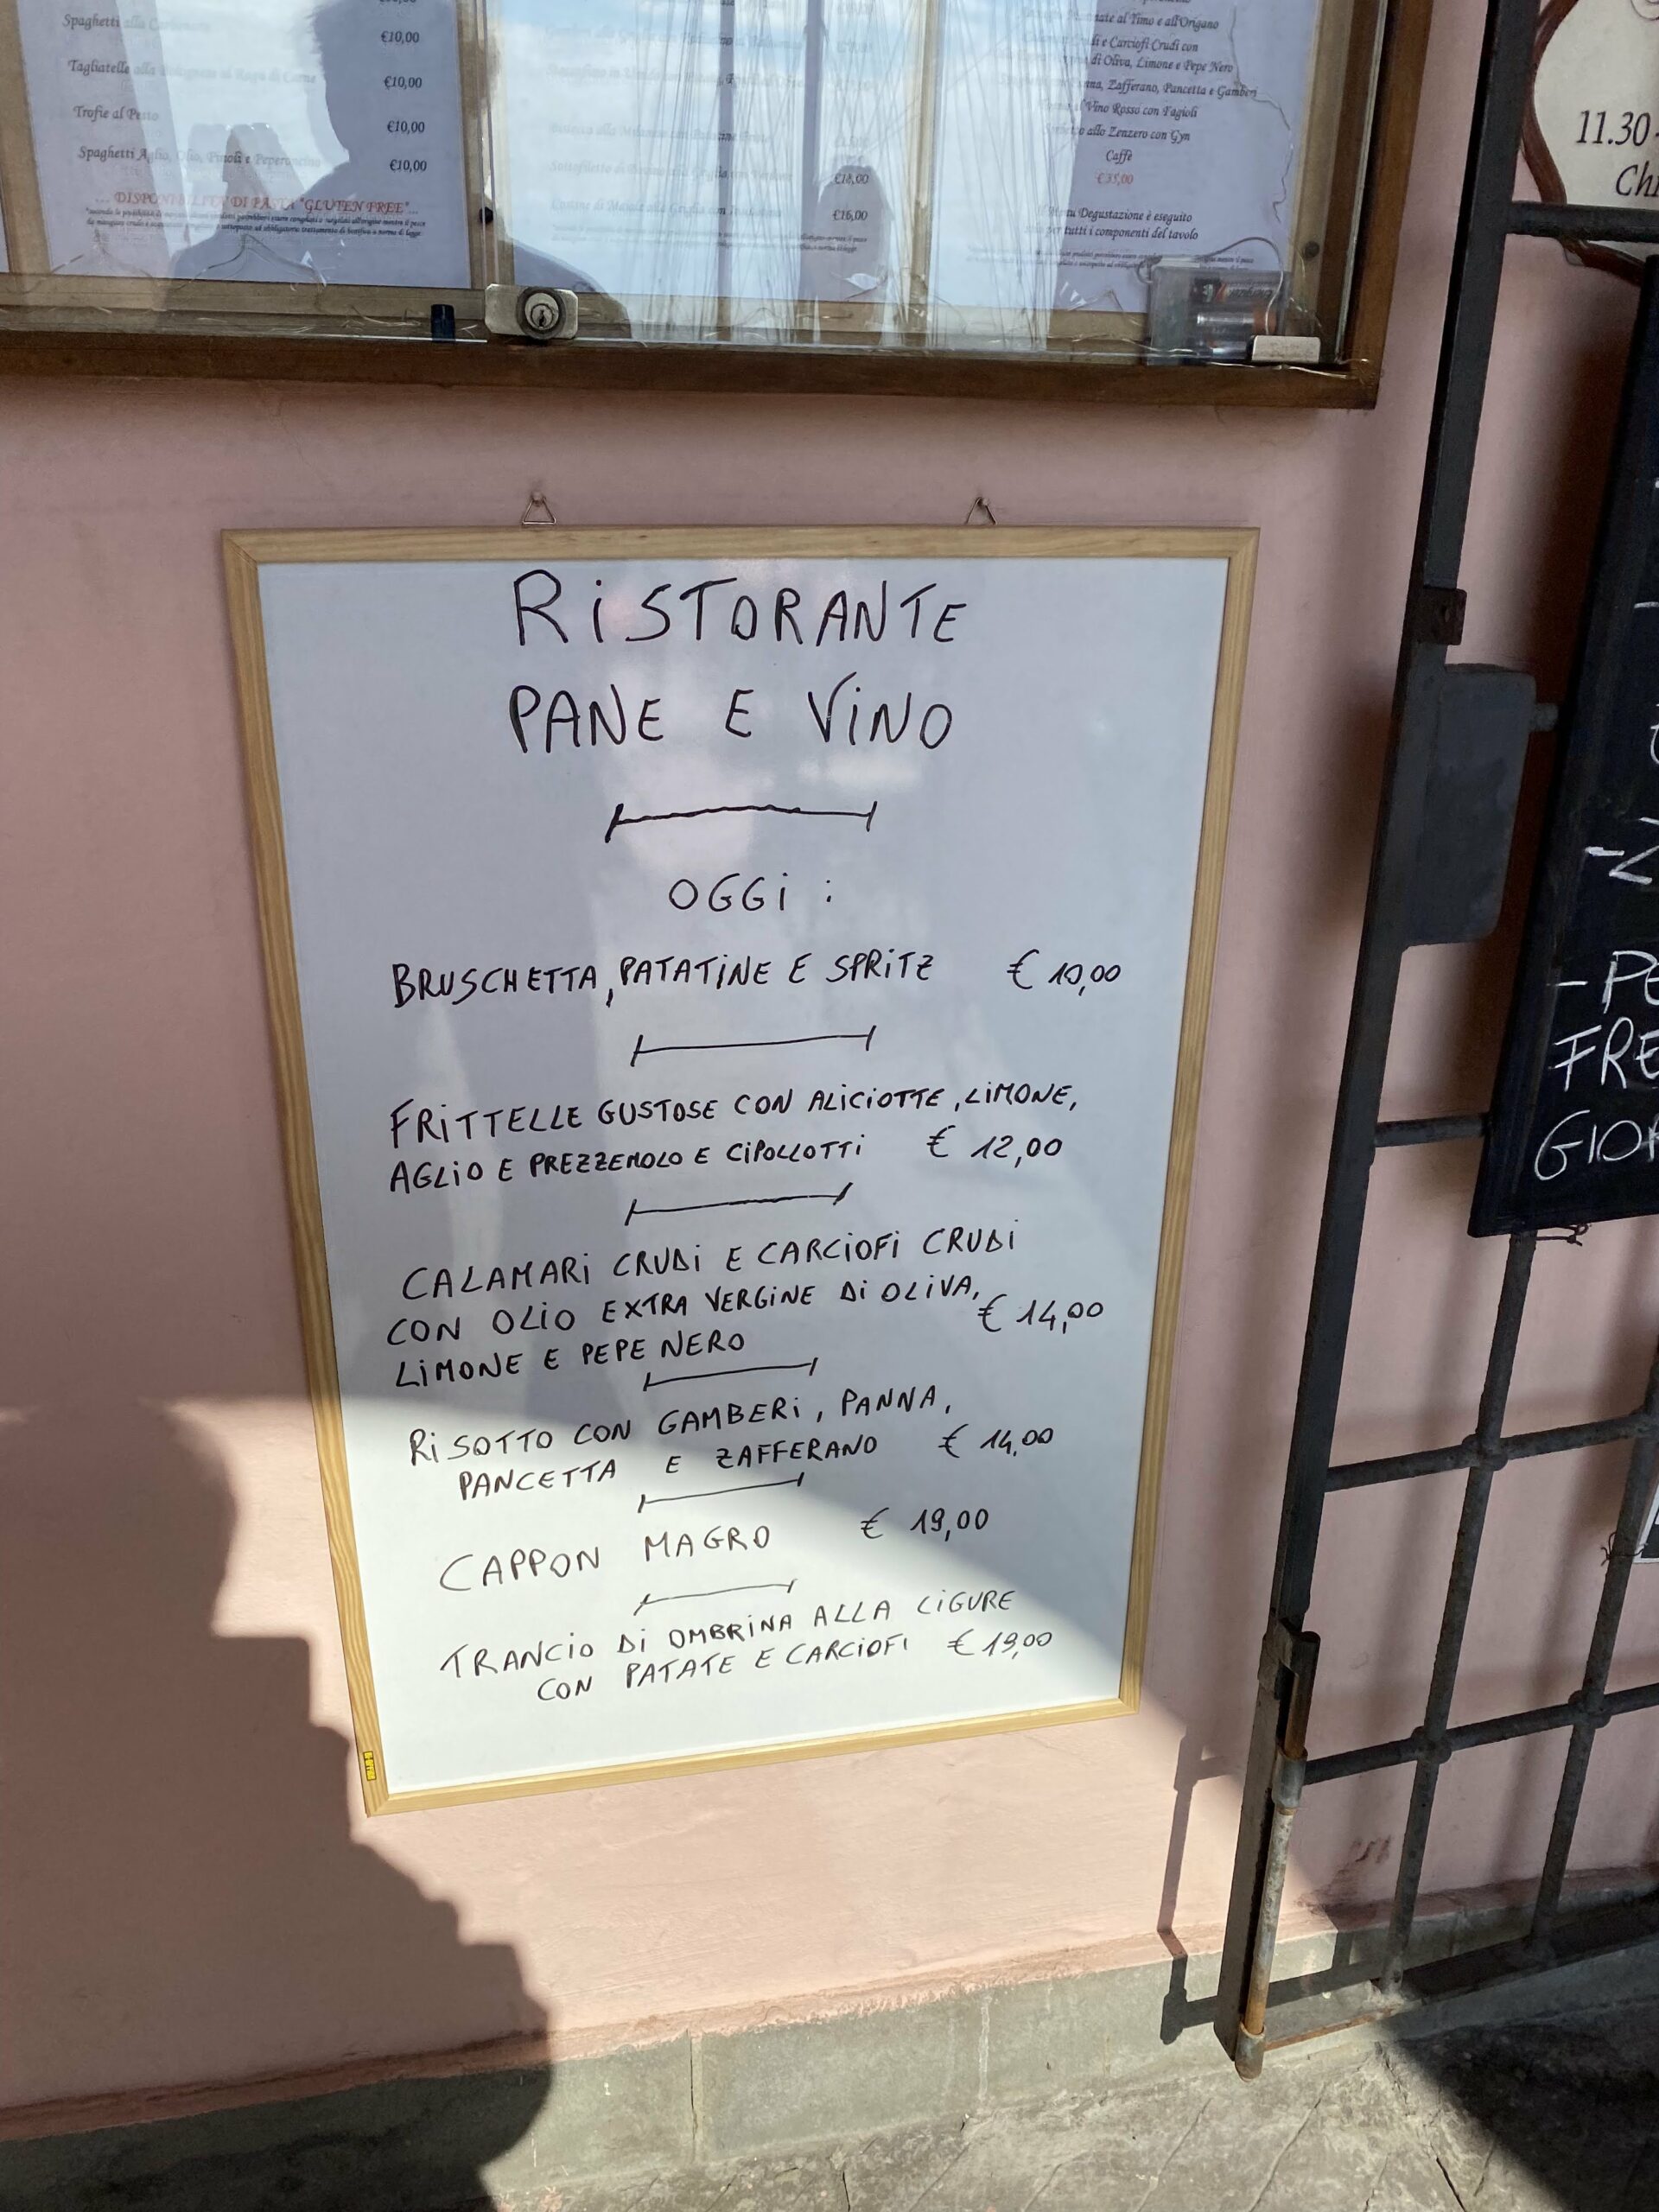 Spaghetti alla Carbonara €10,00
Tagliatelle alla Bolognese al Ragù di Carne €10,00
Trofie al Pesto €10,00
Spaghetti Aglio, Olio, Pinoli e Peperoncino €10,00
... DISPONIBILITÀ DI PASTA "GLUTEN FREE"...
€18,00
€16,00
al Timo e all'Origano
e Carciofi Crudi con
di Oliva, Limone e Pepe Nero
Zafferano, Pancetta e Gamberi
Vino Rosso con Fagioli
allo Zenzero con Gyn
Caffè
€35,00
Menu Degustazione è eseguito
per tutti i componenti del tavolo
11.30
RiSTORANTE
PANE E ViNO
OGGi :
BRUSCHETTA, PATATiNE E SPRiTZ € 10,00
FRiTTELLE GUSTOSE CON ALiCiOTTE, LiMONE,
AGLiO E PREZZEMOLO E CiPOLLOTTi € 12,00
CALAMARi CRUDi E CARCiOFi CRUDi
CON OLiO EXTRA VERGiNE Di OLiVA, € 14,00
LiMONE E PEPE NERO
RiSOTTO CON GAMBERi, PANNA,
PANCETTA E ZAFFERANO € 14,00
CAPPON MAGRO € 19,00
TRANCiO Di OMBRiNA ALLA LiGURE
CON PATATE E CARCiOFi € 19,00
-Z
- PE
FRE
GIOR